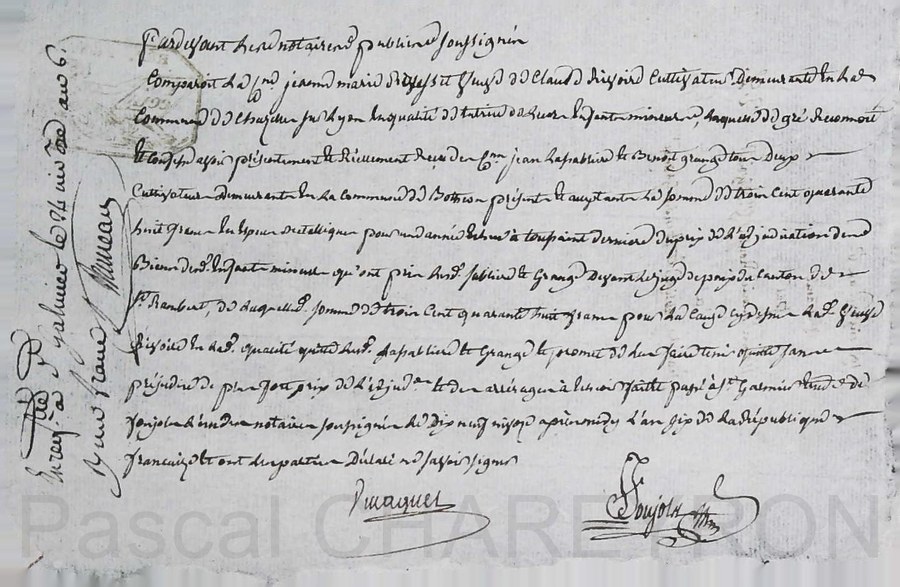 Pardevant les notaires publics soussignés
Comparoit la Cne jeanne marie veuve de Claude rivoire Cultivateur Demeurante en la
Commune de Chazelle sur Lyon en qualité de tutrice de leurs Enfants mineurs, laquelle de gré Reconnoit
et Confesse avoir présentement et Réellement Reçu des Cens jean lasablière et Benoit grange tous Deux
Cultivateurs demeurants en la Commune de présents et acceptants la somme de trois Cent quarante
huit francs en Espèces métalliques pour une année Echue à toussaint dernier du prix de l'adjudication des
Biens des. Enfants mineurs qu'ont pris sablière et Grange Devant le juge de paix du Canton de
St Rambert, de laquelle somme de trois Cent quarante huit francs pour la Cause la de. Veuve
rivoire en lad. qualité quitte lasablière et Grange et promet de les faire tenir quitte sans
préjudice de plus fort prix de l'adjudon et des arrérages à Echoir faitte passé à St Galmier Etude de
Joujole l'un des notaires soussignés le Dix neuf nivose après midy l'an six de la République
francaise et ont les parties Déclaré ne savoir signer
Joujole
Enregé. à St galmier le nivose an 6.
Reçu francs
Pascal CHARETRON